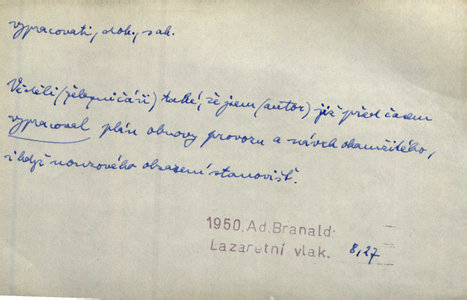 vypracovati, dok., sak.
Věděli (železničáři) také, že jsem (autor) již před časem
vypracoval plán obnovy provozu a návrh okamžitého,
i když nouzového obsazení stanovišť.
1950, Ad. Branald:
Lazaretní vlak. 8,27